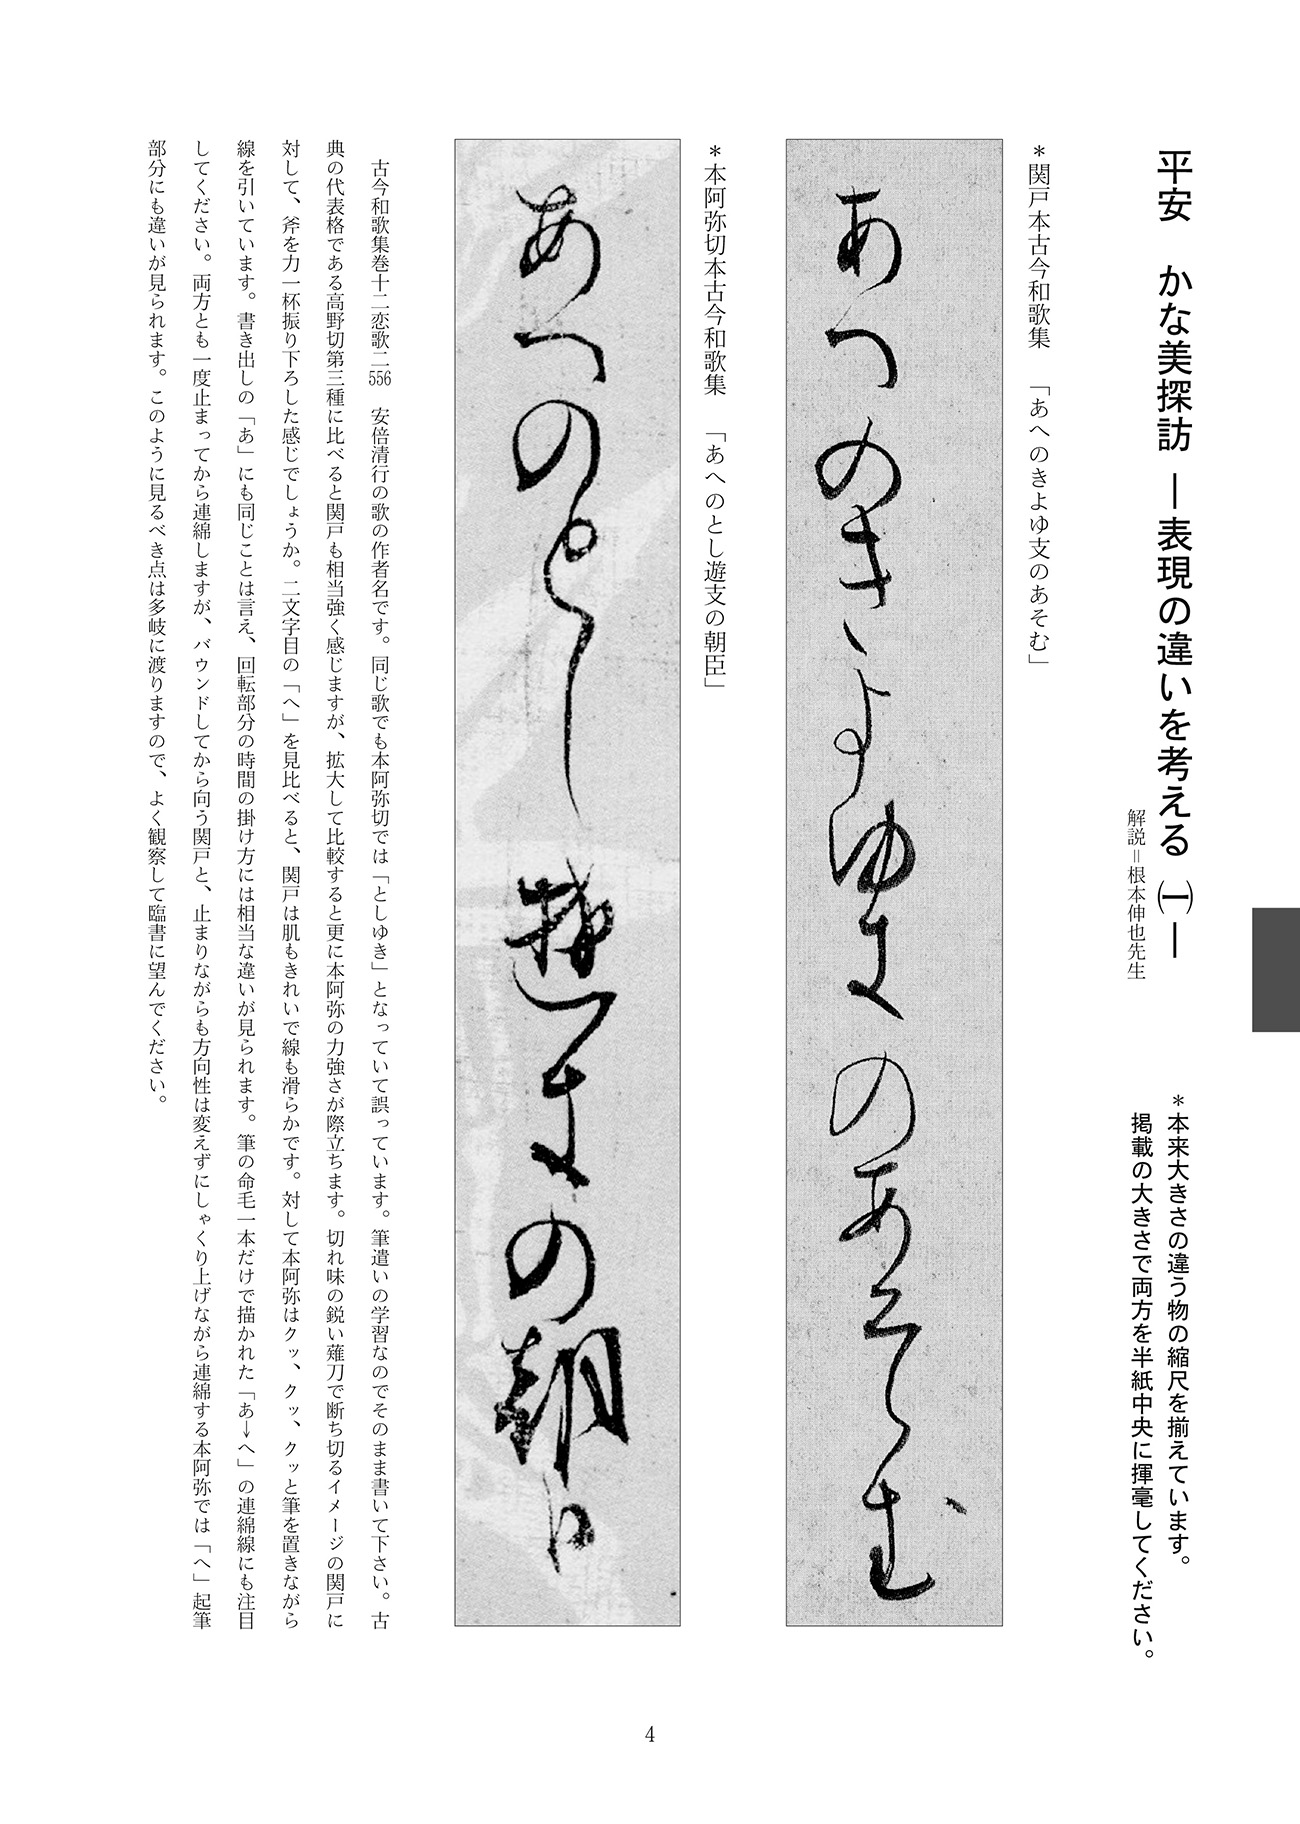 平安　かな美探訪 ―表現の違いを考える ㈠―
解説＝根本伸也先生
＊本来大きさの違う物の縮尺を揃えています。
掲載の大きさで両方を半紙中央に揮毫してください。
＊関戸本古今和歌集　「あへのきよゆ支のあそむ」
あへのきよゆ支のあそむ
＊本阿弥切本古今和歌集　「あへのとし遊支の朝臣」
あへのとし遊支の朝臣
古今和歌集巻十二恋歌二556　安倍清行の歌の作者名です。同じ歌でも本阿弥切では「としゆき」となっていて誤っています。筆遣いの学習なのでそのまま書いて下さい。古
典の代表格である高野切第三種に比べると関戸も相当強く感じますが、拡大して比較すると更に本阿弥の力強さが際立ちます。切れ味の鋭い薙刀で断ち切るイメージの関戸に
対して、斧を力一杯振り下ろした感じでしょうか。二文字目の「へ」を見比べると、関戸は肌もきれいで線も滑らかです。対して本阿弥はクッ、クッ、クッと筆を置きながら
線を引いています。書き出しの「あ」にも同じことは言え、回転部分の時間の掛け方には相当な違いが見られます。筆の命毛一本だけで描かれた「あ→へ」の連綿線にも注目
してください。両方とも一度止まってから連綿しますが、バウンドしてから向う関戸と、止まりながらも方向性は変えずにしゃくり上げながら連綿する本阿弥では「へ」起筆
部分にも違いが見られます。このように見るべき点は多岐に渡りますので、よく観察して臨書に望んでください。
4